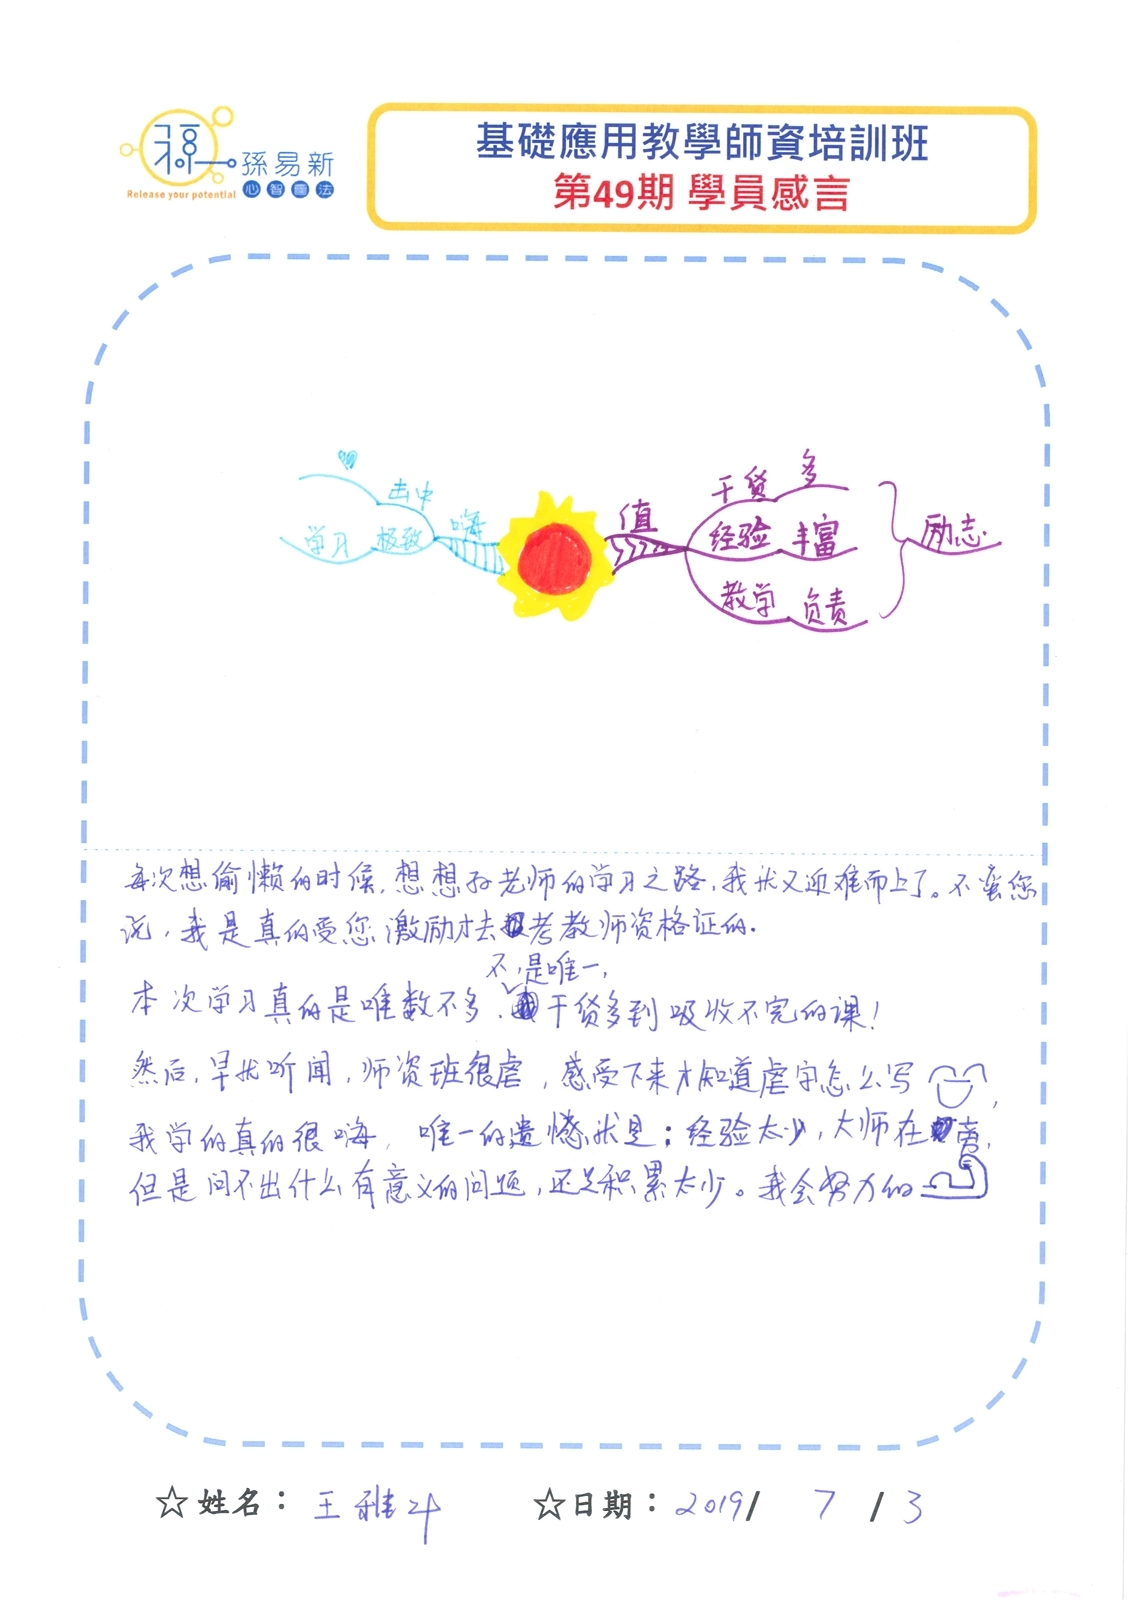 孫易新
心智圖法
Release your potential
基礎應用教學師資培訓班
第49期 學員感言
击中
学习 极致
嗨
值
干货 多
经验 丰富
教学 负责
励志
每次想偷懒的时候,想想孙老师的学习之路,我就又迎难而上了。不瞒您
说,我是真的受您激励才去考教师资格证的.
不是唯一,
本次学习真的是唯数不多、干货多到吸收不完的课!
然后,早就听闻,师资班很虐,感受下来才知道虐字怎么写,
我学的真的很嗨,唯一的遗憾就是;经验太少,大师在旁,
但是问不出什么有意义的问题,还是积累太少。我会努力的
☆姓名: 王雅
☆日期: 2019/ 7 /3